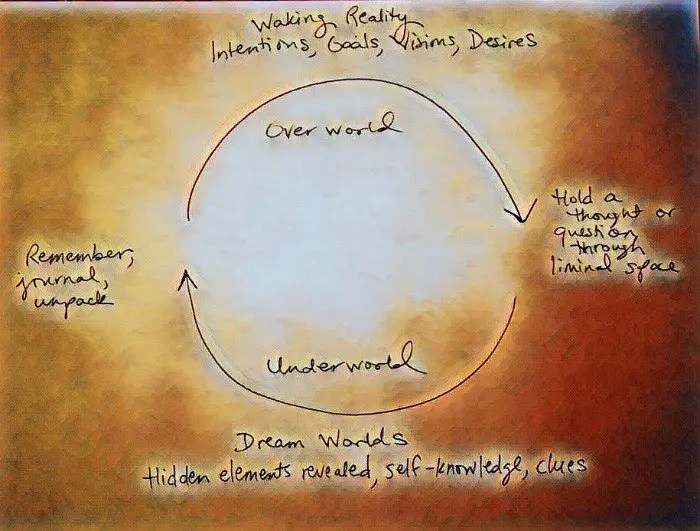 Waking Reality
Intentions, Goals, Visions, Desires
Over world
Hold a
thought or
question,
through
liminal space
Remember,
journal,
unpack
Underworld
Dream Worlds
Hidden elements revealed, self-knowledge, clues